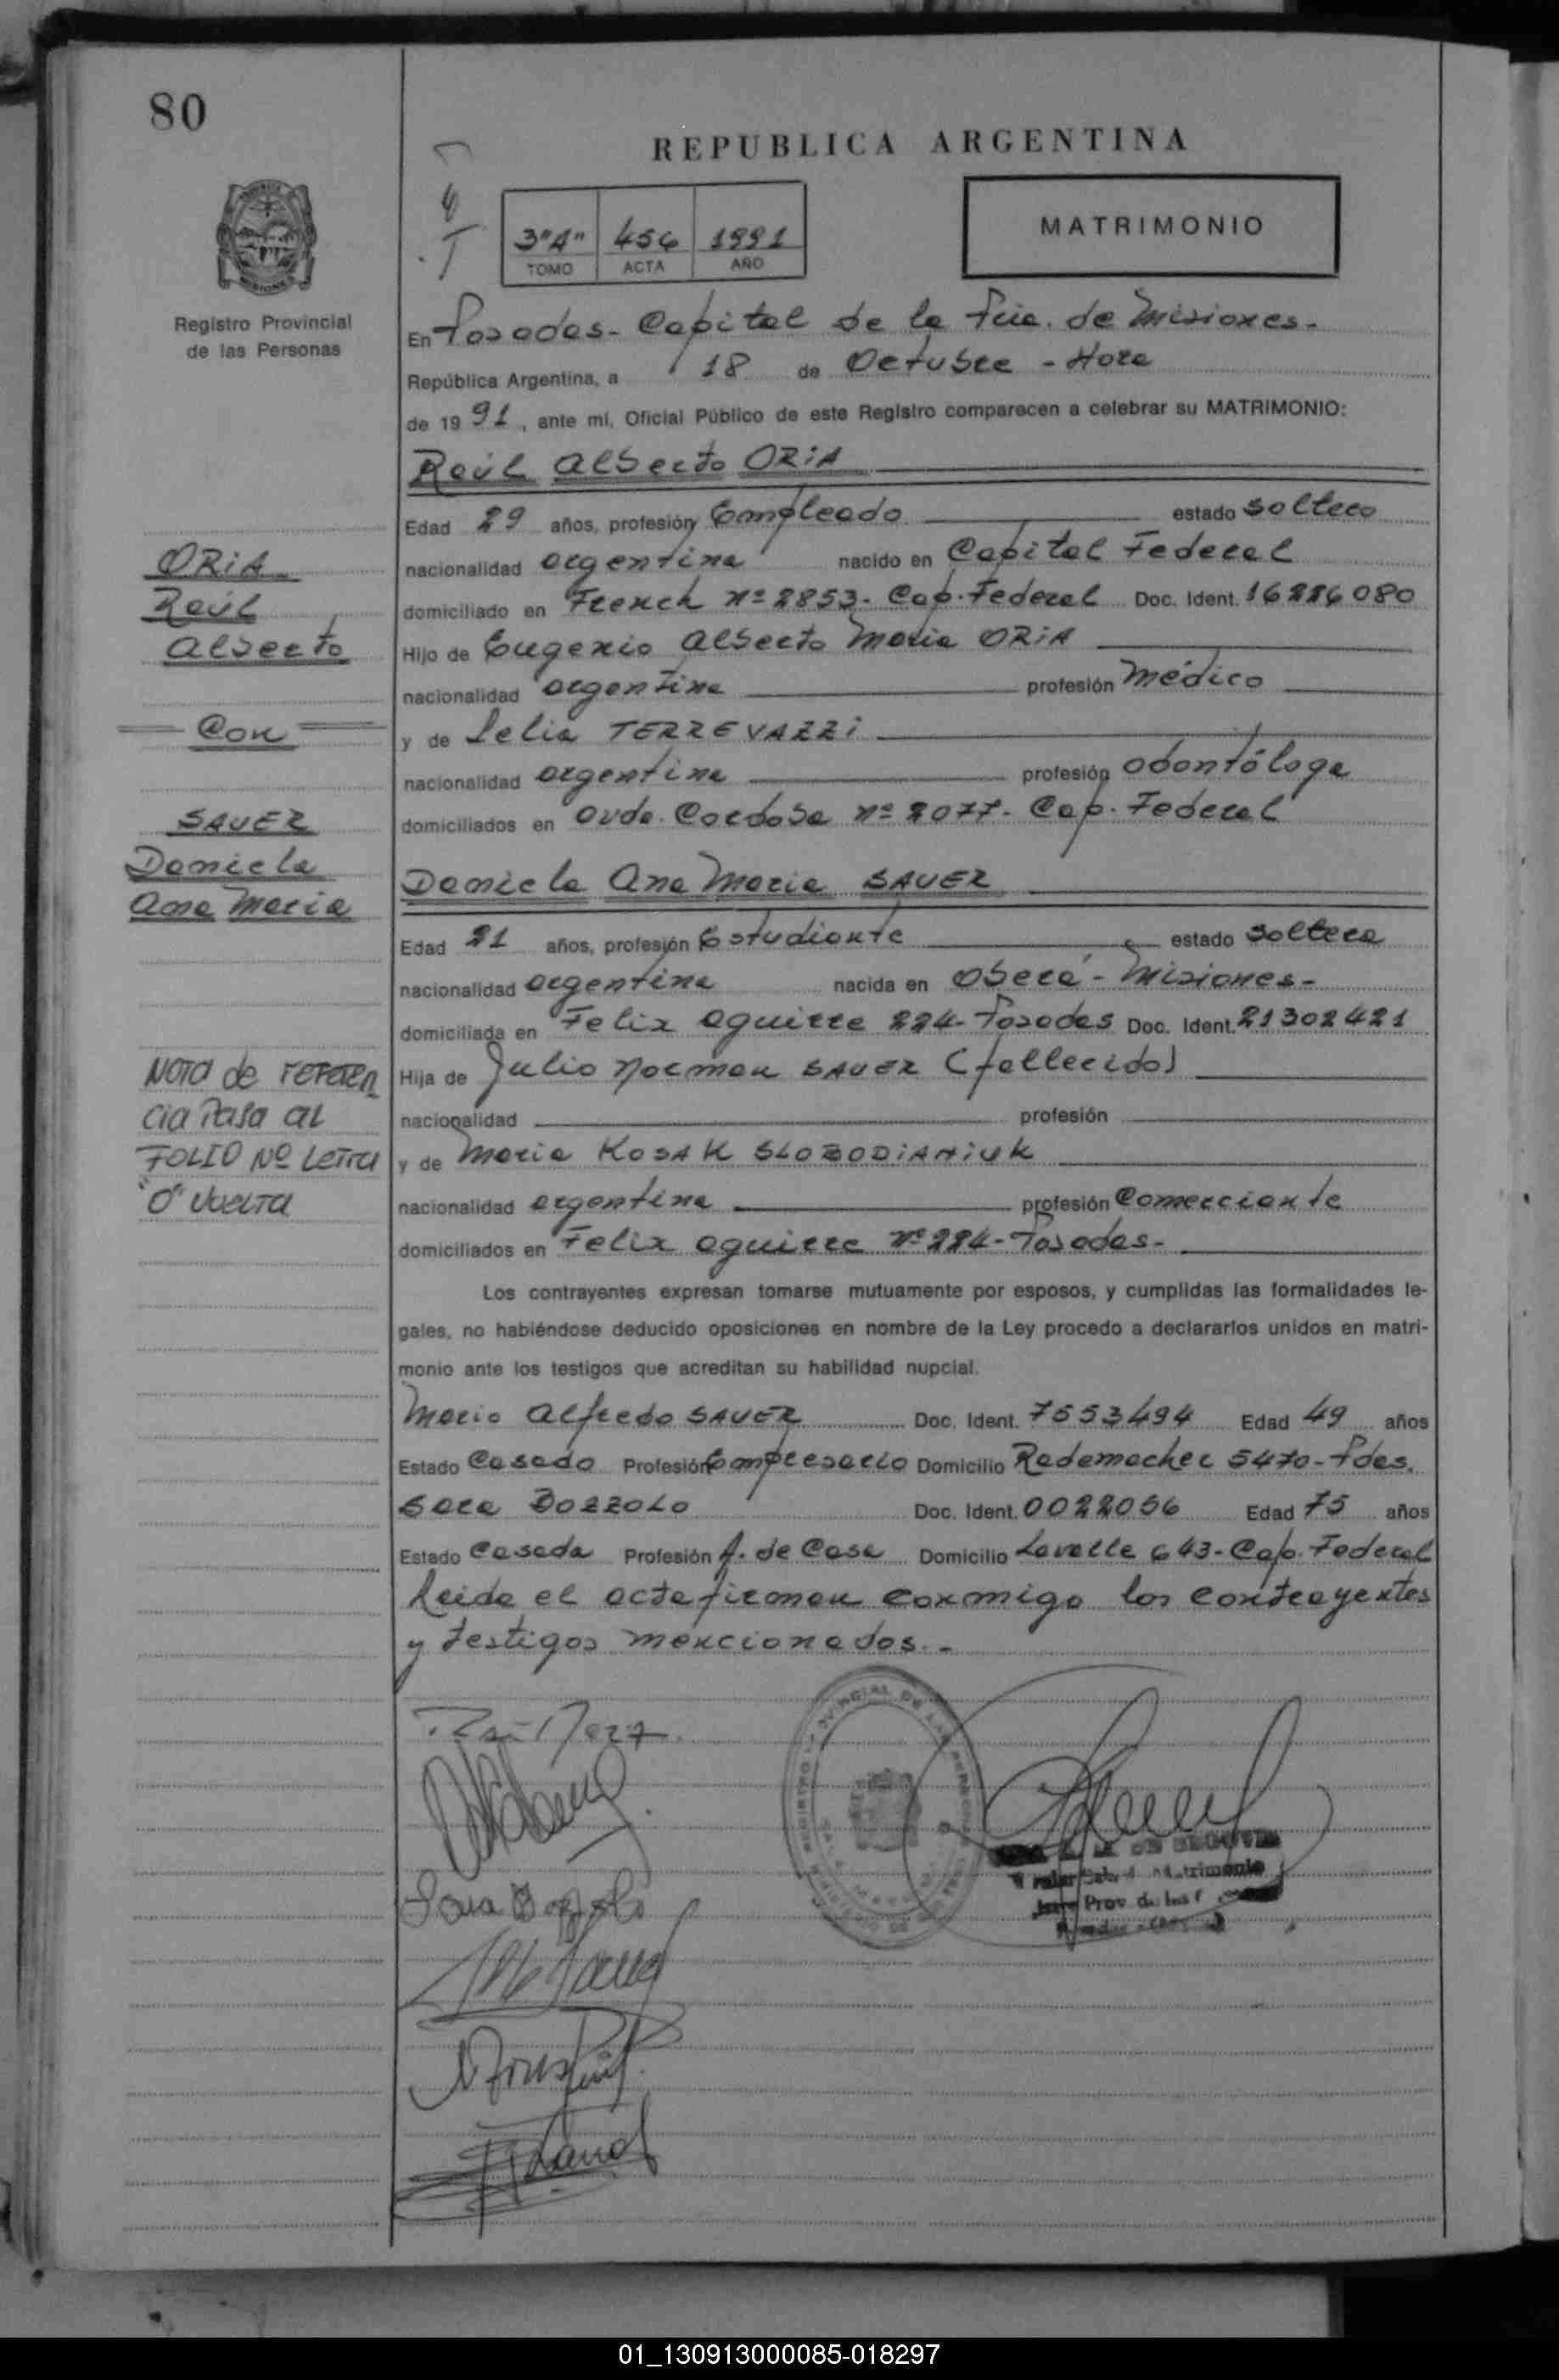 80
REPUBLICA ARGENTINA
3"A" 456 1991
TOMO ACTA AÑO
MATRIMONIO
Registro Provincial
de las Personas
En Posadas- Capital de la Pcia. de Misiones.-
República Argentina, a 18 de Octubre - Hora
de 19 91, ante mi, Oficial Público de este Registro comparecen a celebrar su MATRIMONIO:
Raúl Alberto ORIA
Edad 29 años, profesión Empleado estado soltero
nacionalidad argentina nacido en Capital Federal
domiciliado en French Nº 2853- Cap. Federal Doc. Ident. 16226080
Hijo de Eugenio Alberto Maria ORIA
nacionalidad argentina profesión Médico
y de Lelia TERREVAZZI
nacionalidad argentina profesión odontóloga
domiciliados en Avda. Cordoba Nº 2077- Cap. Federal
Daniela Ana Maria SAUER
Edad 21 años, profesión Estudiante estado soltera
nacionalidad argentina nacida en Oberá - Misiones-
domiciliada en Felix Aguirre 224- Posadas Doc. Ident. 21302421
Hija de Julio Norman SAUER (fallecido)
nacionalidad profesión
y de Maria KOSAK SLOBODIANIUK
nacionalidad argentina profesión Comerciante
domiciliados en Felix Aguirre Nº 224- Posadas-
Los contrayentes expresan tomarse mutuamente por esposos, y cumplidas las formalidades le-
gales, no habiéndose deducido oposiciones en nombre de la Ley procedo a declararlos unidos en matri-
monio ante los testigos que acreditan su habilidad nupcial.
Mario Alfredo SAUER Doc. Ident. 7553494 Edad 49 años
Estado Casado Profesión Empresario Domicilio Rademacher 5470- Pdas.
Sara BOZZOLO Doc. Ident. 0022056 Edad 75 años
Estado Casada Profesión A. de Casa Domicilio Lavalle 643- Cap. Federal
Leida el acta firman conmigo los contrayentes
y testigos mencionados.-
ORIA
Raúl
Alberto
Con
SAUER
Daniela
Ana Maria
NOTA de referen
cia Pasa al
FOLIO Nº Letra
"O" Vuelta
Sara Bozzolo
01_130913000085-018297